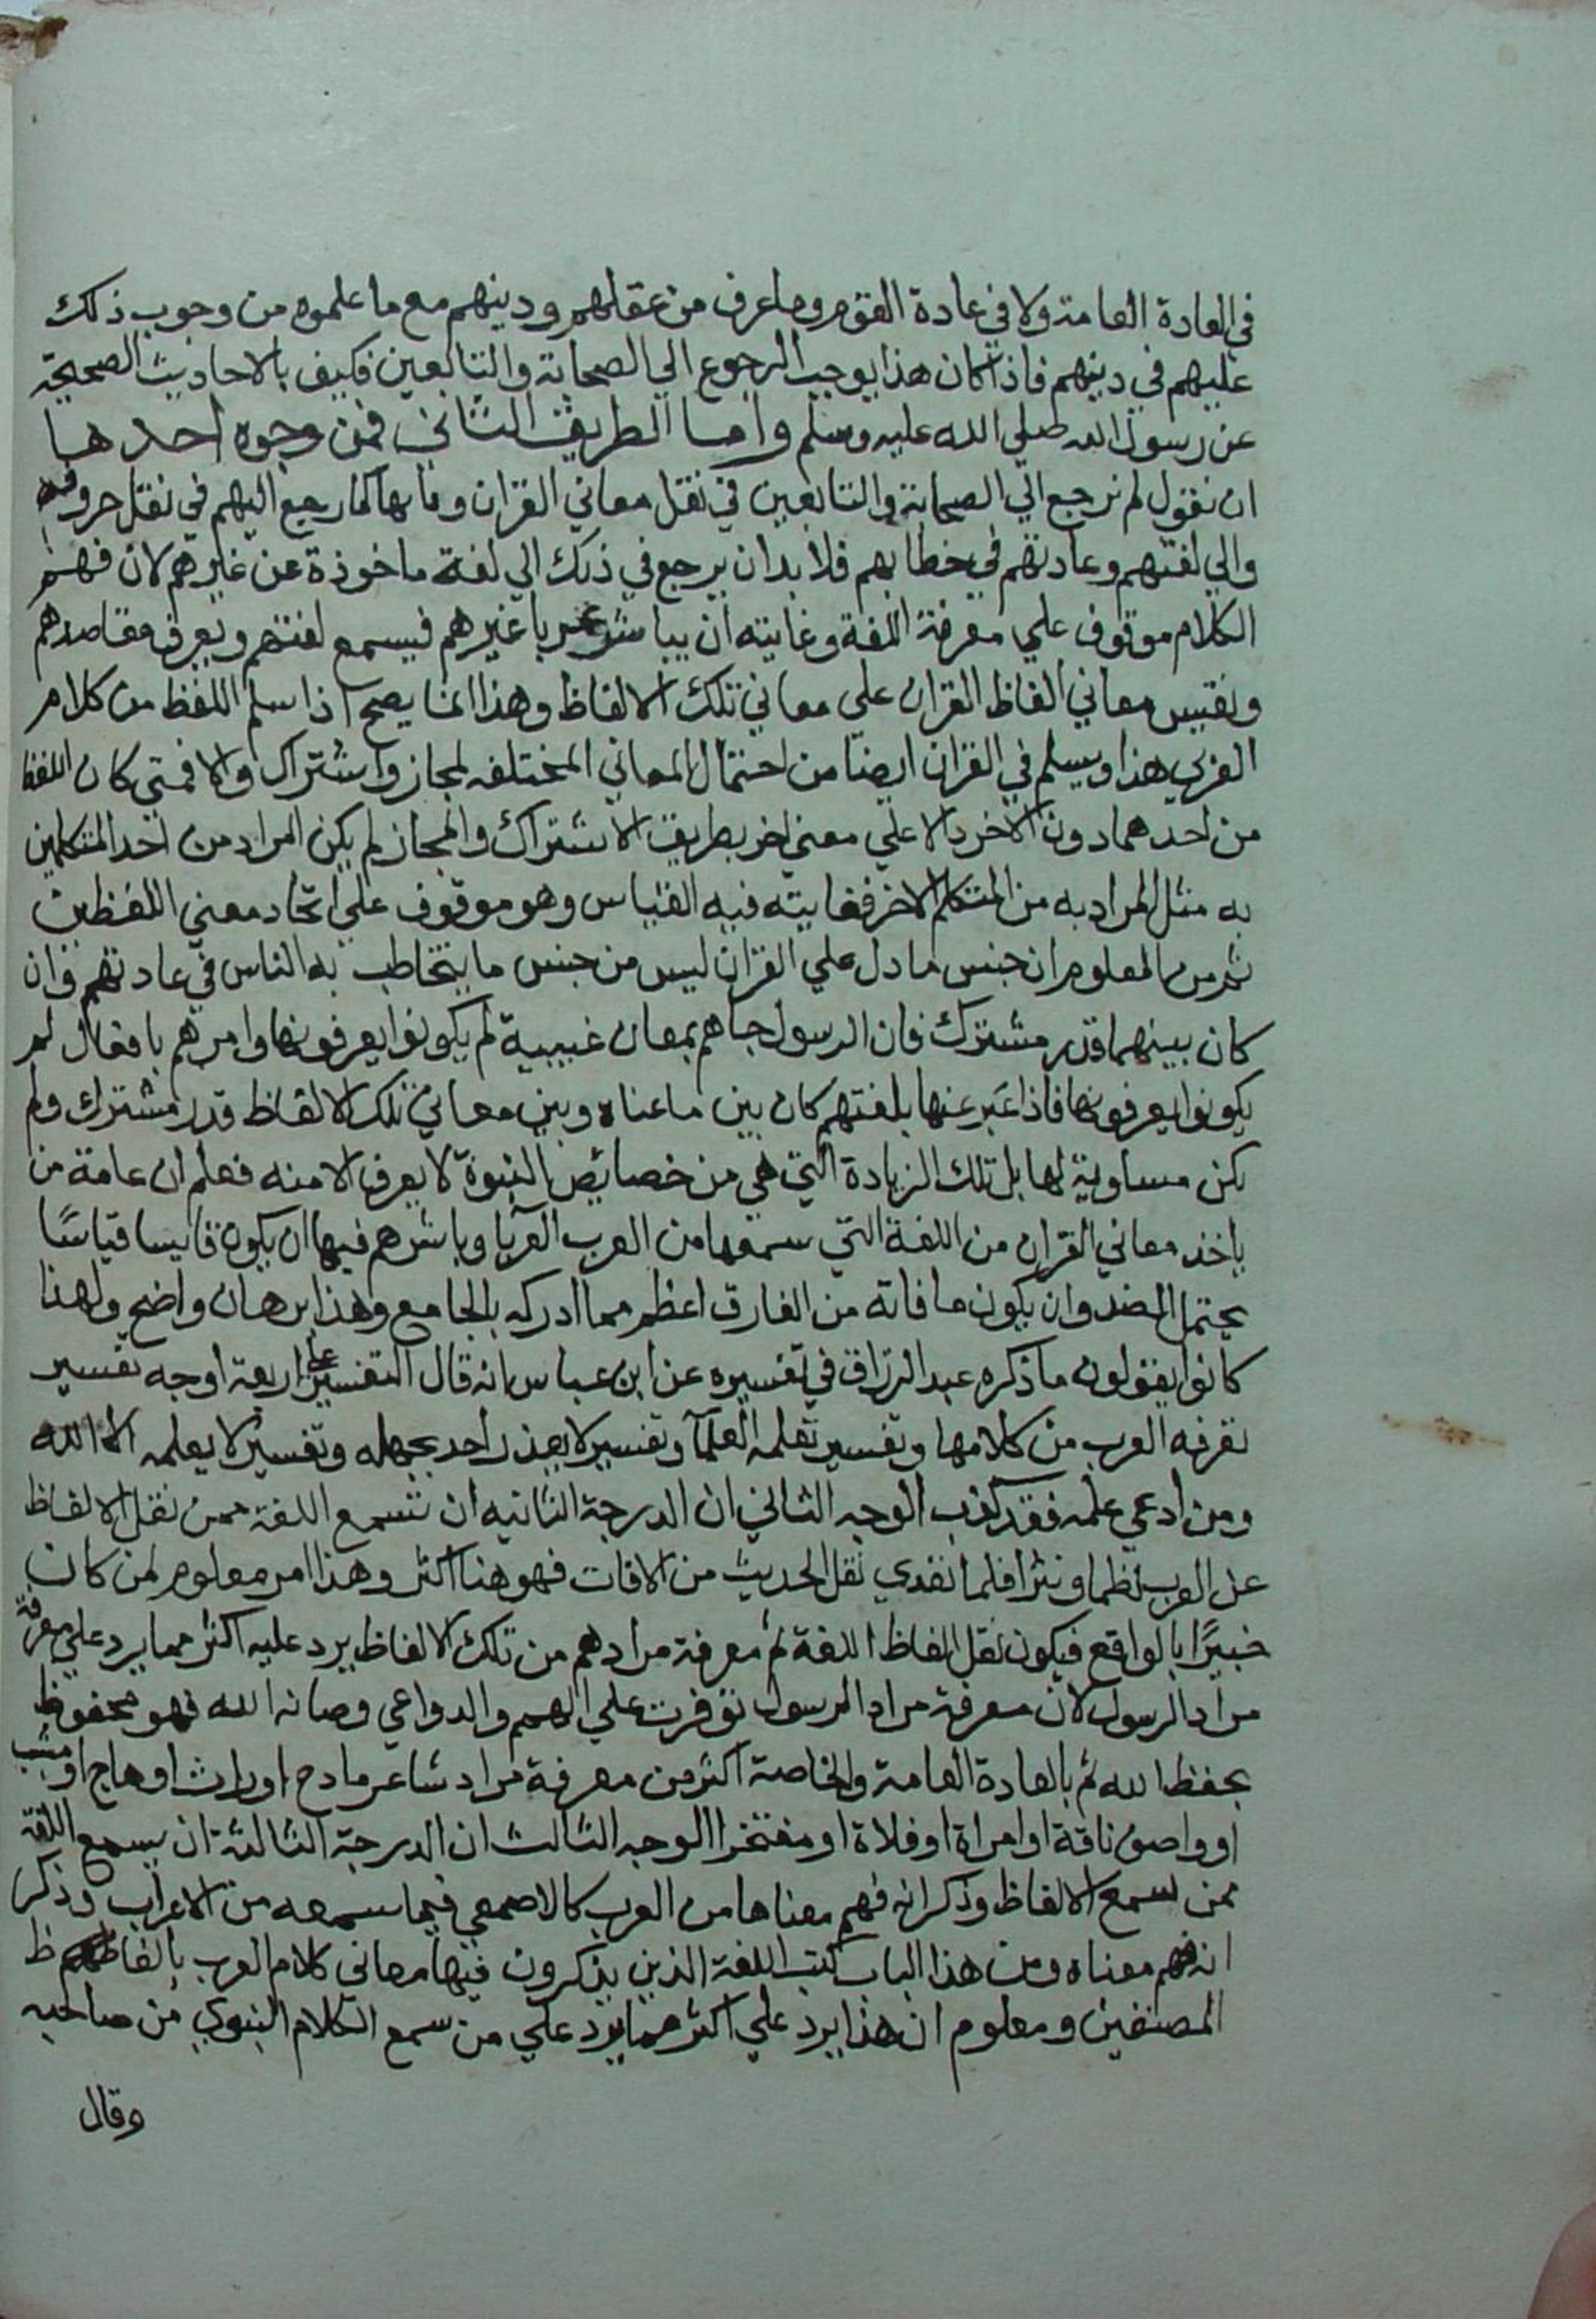 في العادة العامة ولا في عادة القوم وما عرف من عقلهم ودينهم مع ما علموه من وجوب ذلك
عليهم في دينهم فاذا كان هذا يوجب الرجوع الي الصحابة والتابعين فكيف بالاحاديث الصحيحة
عن رسول الله صلي الله عليه وسلم واما الطريق الثاني فمن وجوه احدها
ان نقول لم نرجع الي الصحابة والتابعين في نقل معاني القران كما رجع اليهم في نقل حروفه
والي لغتهم وعادتهم في خطابهم فلا بد ان يرجع في ذلك الي لغة ماخوذة عن غيرهم لان فهم
الكلام موقوف علي معرفة اللغة وغايته ان يباشر عربا غيرهم فيسمع لغتهم ويعرف مقاصدهم
ونقيس معاني الفاظ القران علي معاني تلك الالفاظ وهذا انما يصح اذا سلم اللفظ من كلام
العربي هذا ويسلم في القران ايضا من احتمال المعاني المختلفه لمجاز واشتراك والا فمتي كان اللفظ
من احدهما دون الاخر دالا علي معني اخر بطريق الاشتراك والمجاز لم يكن المراد من احد المتكلمين
به مثل المراد به من المتكلم الاخر فغايته فيه القياس وهو موقوف علي اتحاد معني اللفظين
ثم من المعلوم ان جنس ما دل علي القران ليس من جنس ما يتخاطب به الناس في عادتهم وان
كان بينهما قدر مشترك فان الرسول جاهم بمعان غيبية لم يكونوا يعرفونها وامرهم بافعال لم
يكونوا يعرفونها فاذا عَبر عنها بلغتهم كان بين ما عناه وبين معاني تلك الالفاظ قدر مشترك ولم
تكن مساوية لها بل تلك الزيادة التي هي من خصايص النبوة لا يعرف الا منه فعلم ان عامة من
ياخذ معاني القران من اللغة التي سمعها من العرب العربا وباشرهم فيها ان يكون قايسا قياسًا
يحتمل الضد وان يكون ما فاته من الفارق اعظم مما ادركه بالجامع وهذا برهان واضح ولهذا
كانوا يقولون ما ذكره عبد الرزاق في تفسيره عن ابن عباس انه قال التفسير علي اربعة اوجه تفسير
تعرفه العرب من كلامها وتفسير تعلمه العلمآ وتفسير لا يعذر احد بجهله وتفسير لا يعلمه الا الله
ومن ادعي علمه فقد كذب الوجه الثاني ان الدرجة الثانيه ان تسمع اللغة ممن نقل الالفاظ
عن العرب نظما ونثرا فلما نفدي نقل الحديث من الافات فهو هنا اكثر وهذا امر معلوم لمن كان
خبيرًا بالواقع فيكون نقل الفاظ اللغة ثم معرفة مرادهم من تلك الالفاظ يرد عليه اكثر مما يرد علي معرفة
مراد الرسول لان معرفة مراد الرسول توفرت علي الهمم والدواعي وصانه الله فهو محفوظ
بحفظ الله ثم بالعادة العامة والخاصة اكثر من معرفة مراد شاعر مادح او راث او هاج او مشبب
او واصف ناقة او امراة او فلاة او مفتخرا الوجه الثالث ان الدرجة الثالثة ان يسمع اللغة
ممن سمع الالفاظ وذكر انه فهم معناها من العرب كالاصمعي فيما سمعه من الاعراب وذكر
انه فهم معناه ومن هذا الباب كتب اللغة الذين يذكرون فيها معاني كلام العرب بالفاظهم ظ
المصنفين ومعلوم ان هذا يرد علي اكثر مما يرد علي من سمع الكلام النبوي من صاحبه
وقال